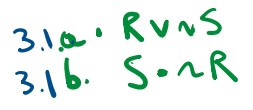 3.1.a. R ∨ ~S
3.1b. S • ~R